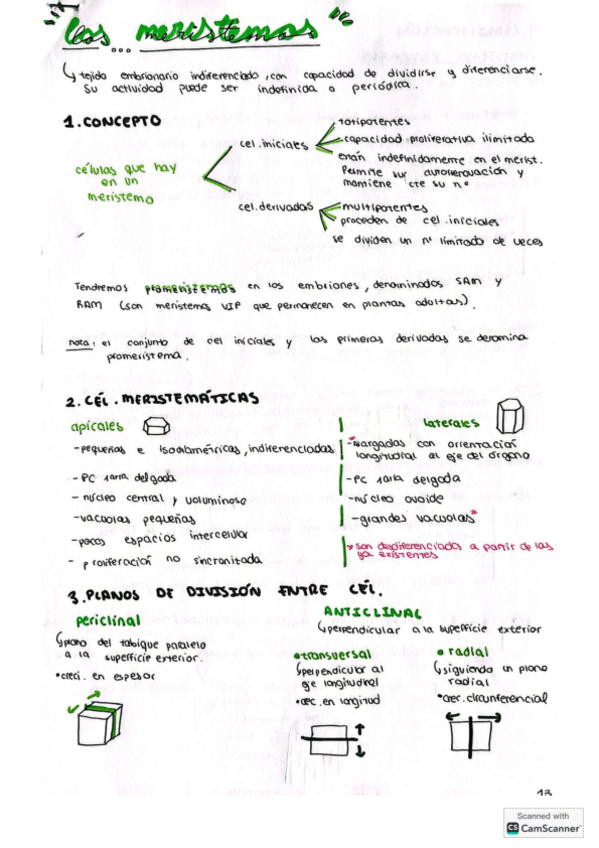 los ... meristemos
↳ tejido embrionario indiferenciado, con capacidad de dividirse y diferenciarse.
Su actividad puede ser indefinida o periódica.
1. CONCEPTO
células que hay
en un
meristemo
cel. iniciales
totipotentes
capacidad proliferativa ilimitada
están indefinidamente en el merist.
Permite su autorrenovación y
mantiene cte su nº
cel. derivadas
multipotentes
proceden de cel. iniciales
se dividen un nº limitado de veces
Tendremos promeristemos en los embriones, denominados SAM y
RAM (son meristemos VIP que permanecen en plantas adultas).
nota: el conjunto de cel iniciales y las primeras derivadas se denomina
promeristema.
2. CÉL. MERISTEMÁTICAS
apicales
- pequeñas e isodiamétricas, indiferenciadas
- PC 1aria delgada
- núcleo central y voluminoso
- vacuolas pequeñas
- pocos espacios intercelular
- proliferación no sincronitada
laterales
- *alargadas con orientación
longitudinal al eje del órgano
- PC 1aria delgada
- núcleo ovoide
- grandes vacuolas*
* son desdiferenciadas a partir de las
ya existentes
3. PLANOS DE DIVISIÓN ENTRE CÉL.
periclinal
↳ plano del tabique paralelo
a la superficie exterior.
• creci. en espesor
ANTICLINAL
↳ perpendicular a la superficie exterior
• transversal
↳ perpendicular al
eje longitudinal
• crec. en longitud
• radial
↳ siguiendo un plano
radial
• crec. circunferencial
13
Scanned with
CS CamScanner